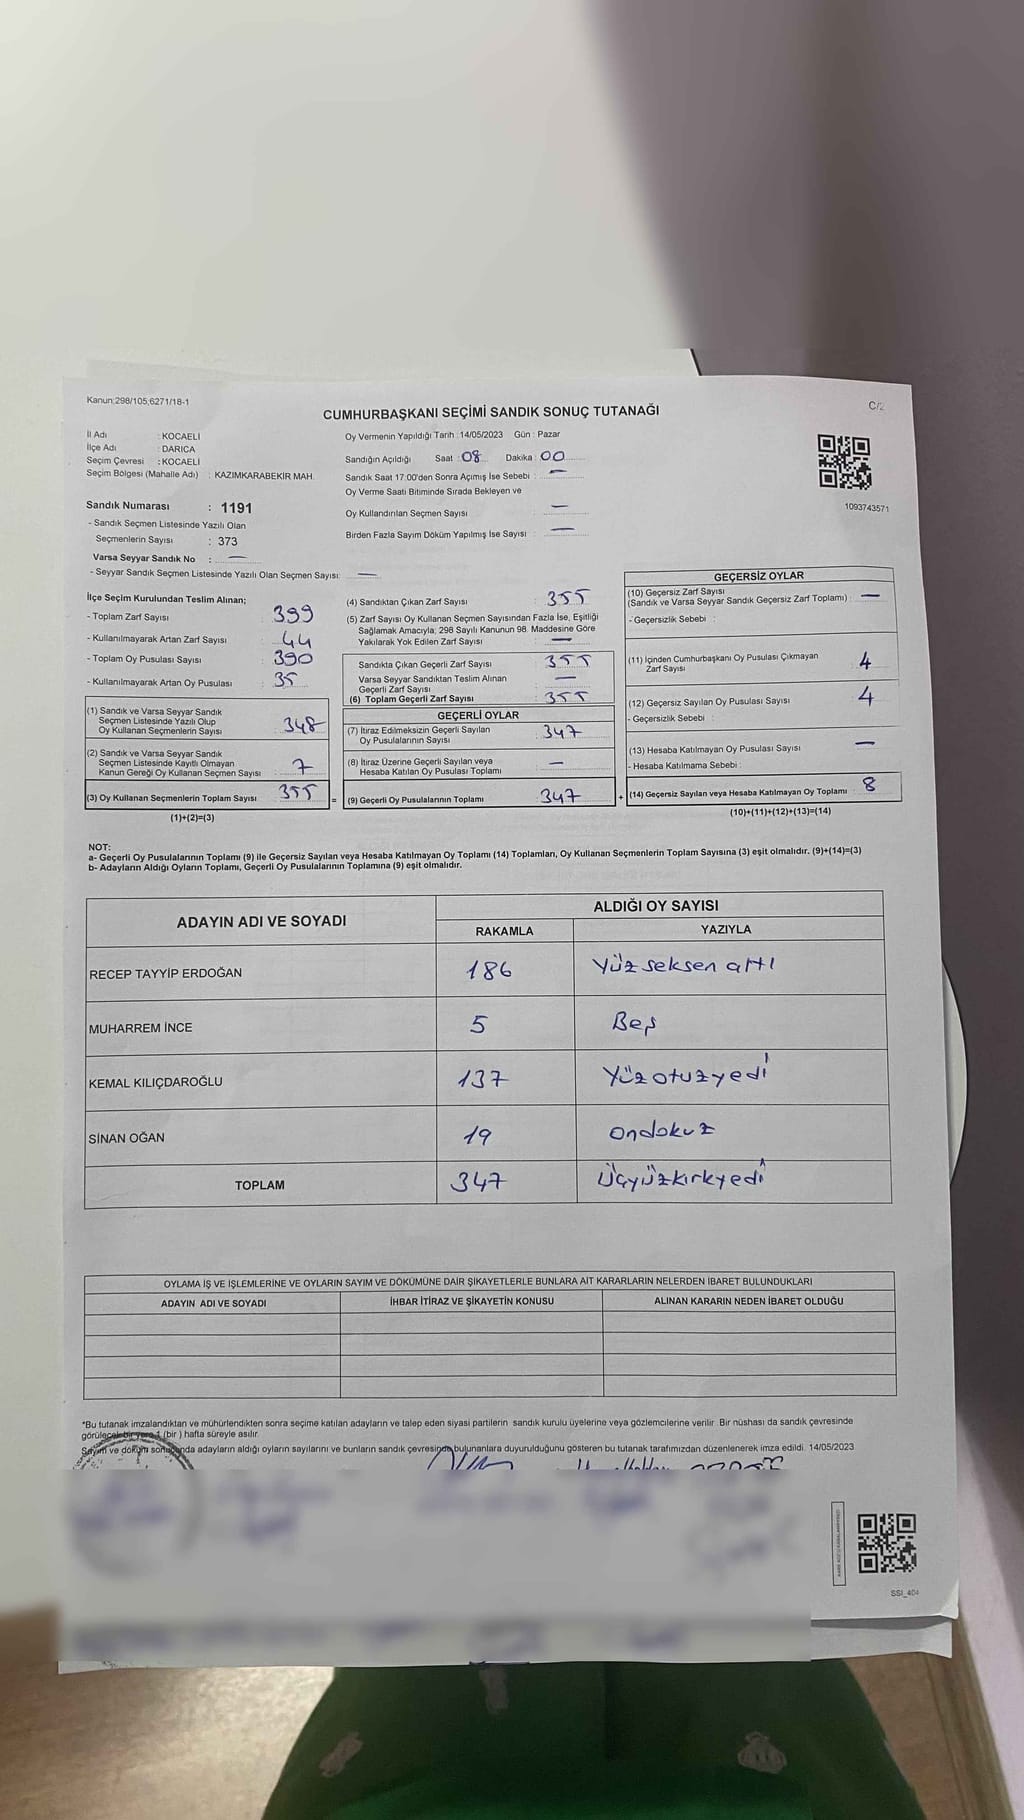 Kanun:298/105,6271/18-1
C/2
CUMHURBAŞKANI SEÇİMİ SANDIK SONUÇ TUTANAĞI
İl Adı : KOCAELİ
İlçe Adı : DARICA
Seçim Çevresi : KOCAELİ
Seçim Bölgesi (Mahalle Adı) : KAZIMKARABEKİR MAH.
Sandık Numarası : 1191
- Sandık Seçmen Listesinde Yazılı Olan
Seçmenlerin Sayısı : 373
Varsa Seyyar Sandık No : —
- Seyyar Sandık Seçmen Listesinde Yazılı Olan Seçmen Sayısı: —
Oy Vermenin Yapıldığı Tarih :14/05/2023 Gün : Pazar
Sandığın Açıldığı Saat : 08 Dakika : 00
Sandık Saat 17:00'den Sonra Açımış İse Sebebi : —
Oy Verme Saati Bitiminde Sırada Bekleyen ve
Oy Kullandırılan Seçmen Sayısı : —
Birden Fazla Sayım Döküm Yapılmış İse Sayısı : —
1093743571
İlçe Seçim Kurulundan Teslim Alınan;
- Toplam Zarf Sayısı : 399
- Kullanılmayarak Artan Zarf Sayısı : 44
- Toplam Oy Pusulası Sayısı : 390
- Kullanılmayarak Artan Oy Pusulası : 35
(1) Sandık ve Varsa Seyyar Sandık
Seçmen Listesinde Yazılı Olup
Oy Kullanan Seçmenlerin Sayısı : 348
(2) Sandık ve Varsa Seyyar Sandık
Seçmen Listesinde Kayıtlı Olmayan
Kanun Gereği Oy Kullanan Seçmen Sayısı : 7
(3) Oy Kullanan Seçmenlerin Toplam Sayısı : 355
(1)+(2)=(3)
=
(4) Sandıktan Çıkan Zarf Sayısı : 355
(5) Zarf Sayısı Oy Kullanan Seçmen Sayısından Fazla İse, Eşitliği
Sağlamak Amacıyla; 298 Sayılı Kanunun 98. Maddesine Göre
Yakılarak Yok Edilen Zarf Sayısı : —
Sandıkta Çıkan Geçerli Zarf Sayısı : 355
Varsa Seyyar Sandıktan Teslim Alınan
Geçerli Zarf Sayısı : —
(6) Toplam Geçerli Zarf Sayısı : 355
GEÇERLİ OYLAR
(7) İtiraz Edilmeksizin Geçerli Sayılan
Oy Pusulalarının Sayısı : 347
(8) İtiraz Üzerine Geçerli Sayılan veya
Hesaba Katılan Oy Pusulası Toplamı : —
(9) Geçerli Oy Pusulalarının Toplamı : 347
+
GEÇERSİZ OYLAR
(10) Geçersiz Zarf Sayısı
(Sandık ve Varsa Seyyar Sandık Geçersiz Zarf Toplamı) : —
- Geçersizlik Sebebi :
(11) İçinden Cumhurbaşkanı Oy Pusulası Çıkmayan
Zarf Sayısı : 4
(12) Geçersiz Sayılan Oy Pusulası Sayısı : 4
- Geçersizlik Sebebi :
(13) Hesaba Katılmayan Oy Pusulası Sayısı : —
- Hesaba Katılmama Sebebi :
(14) Geçersiz Sayılan veya Hesaba Katılmayan Oy Toplamı : 8
(10)+(11)+(12)+(13)=(14)
NOT:
a- Geçerli Oy Pusulalarının Toplamı (9) ile Geçersiz Sayılan veya Hesaba Katılmayan Oy Toplamı (14) Toplamları, Oy Kullanan Seçmenlerin Toplam Sayısına (3) eşit olmalıdır. (9)+(14)=(3)
b- Adayların Aldığı Oyların Toplamı, Geçerli Oy Pusulalarının Toplamına (9) eşit olmalıdır.
ADAYIN ADI VE SOYADI
ALDIĞI OY SAYISI
RAKAMLA YAZIYLA
RECEP TAYYİP ERDOĞAN 186 Yüz seksen altı
MUHARREM İNCE 5 Beş
KEMAL KILIÇDAROĞLU 137 Yüzotuzyedi
SİNAN OĞAN 19 ondokuz
TOPLAM 347 Üçyüzkırkyedi
OYLAMA İŞ VE İŞLEMLERİNE VE OYLARIN SAYIM VE DÖKÜMÜNE DAİR ŞİKAYETLERLE BUNLARA AİT KARARLARIN NELERDEN İBARET BULUNDUKLARI
ADAYIN ADI VE SOYADI İHBAR İTİRAZ VE ŞİKAYETİN KONUSU ALINAN KARARIN NEDEN İBARET OLDUĞU
*Bu tutanak imzalandıktan ve mühürlendikten sonra seçime katılan adayların ve talep eden siyasi partilerin sandık kurulu üyelerine veya gözlemcilerine verilir. Bir nüshası da sandık çevresinde
görülecek bir yere 1 (bir ) hafta süreyle asılır.
Sayım ve döküm sonucunda adayların aldığı oyların sayılarını ve bunların sandık çevresinde bulunanlara duyurulduğunu gösteren bu tutanak tarafımızdan düzenlenerek imza edildi. 14/05/2023
SSI_404